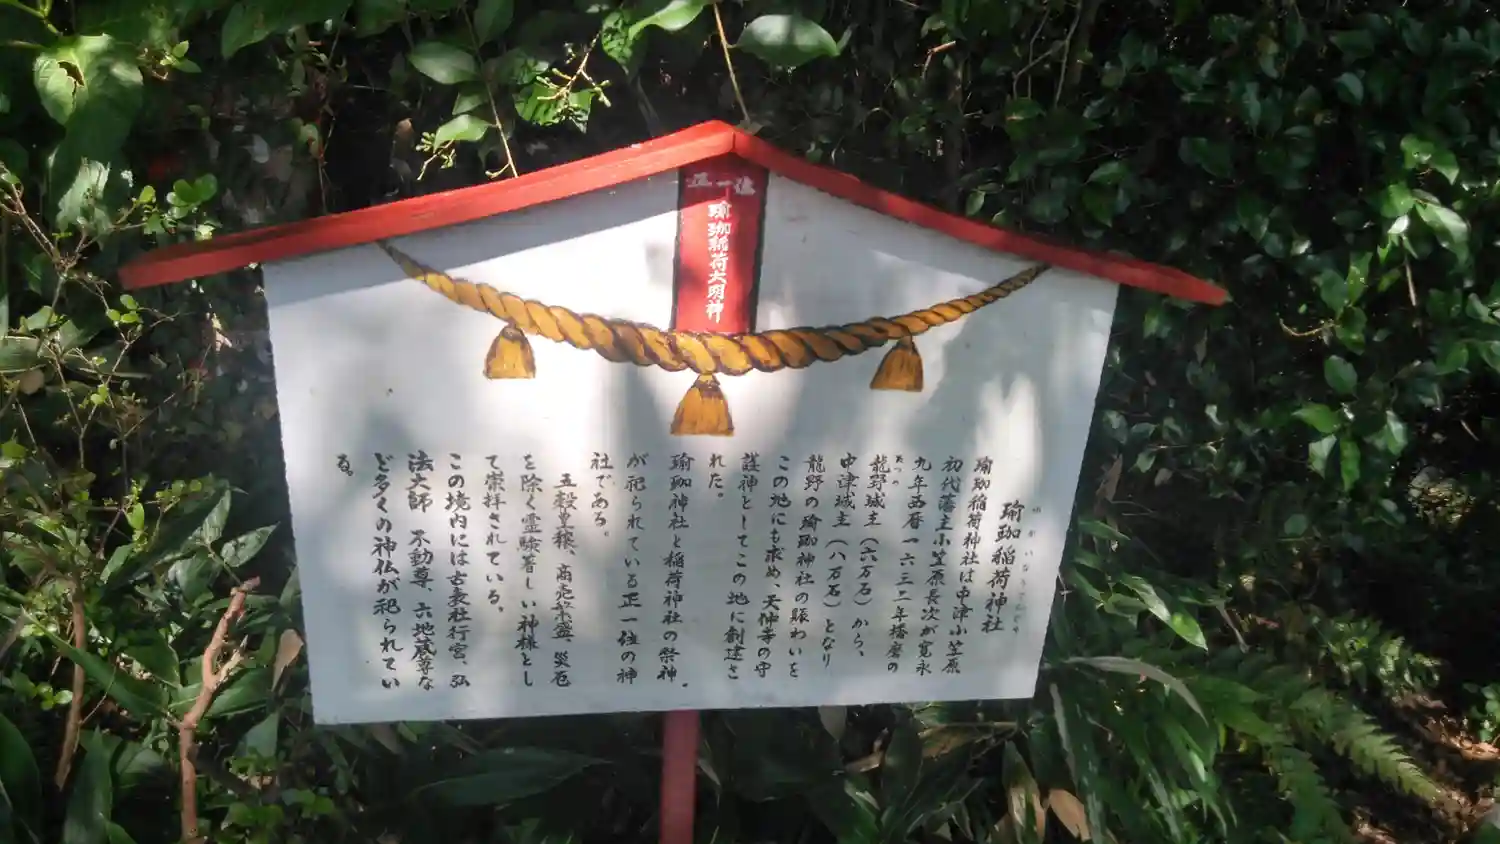 正一位
瑜珈稲荷大明神
瑜珈稲荷神社
ゆかいなりじんじゃ
瑜珈稲荷神社は中津小笠原
初代藩主小笠原長次が寛永
九年西暦一六三二年播磨の
龍野城主(六万石)から、
たつの
中津城主(八万石)となり
龍野の瑜珈神社の賑わいを
この地にも求め、天仲寺の守
護神としてこの地に創建さ
れた。
瑜珈神社と稲荷神社の祭神
が祀られている正一位の神
社である。
五穀豊穣、商売繁盛、災厄
を除く霊験著しい神様とし
て崇拝されている。
この境内には古表社行宮、弘
法大師 不動尊、六地蔵尊な
ど多くの神仏が祀られてい
る。